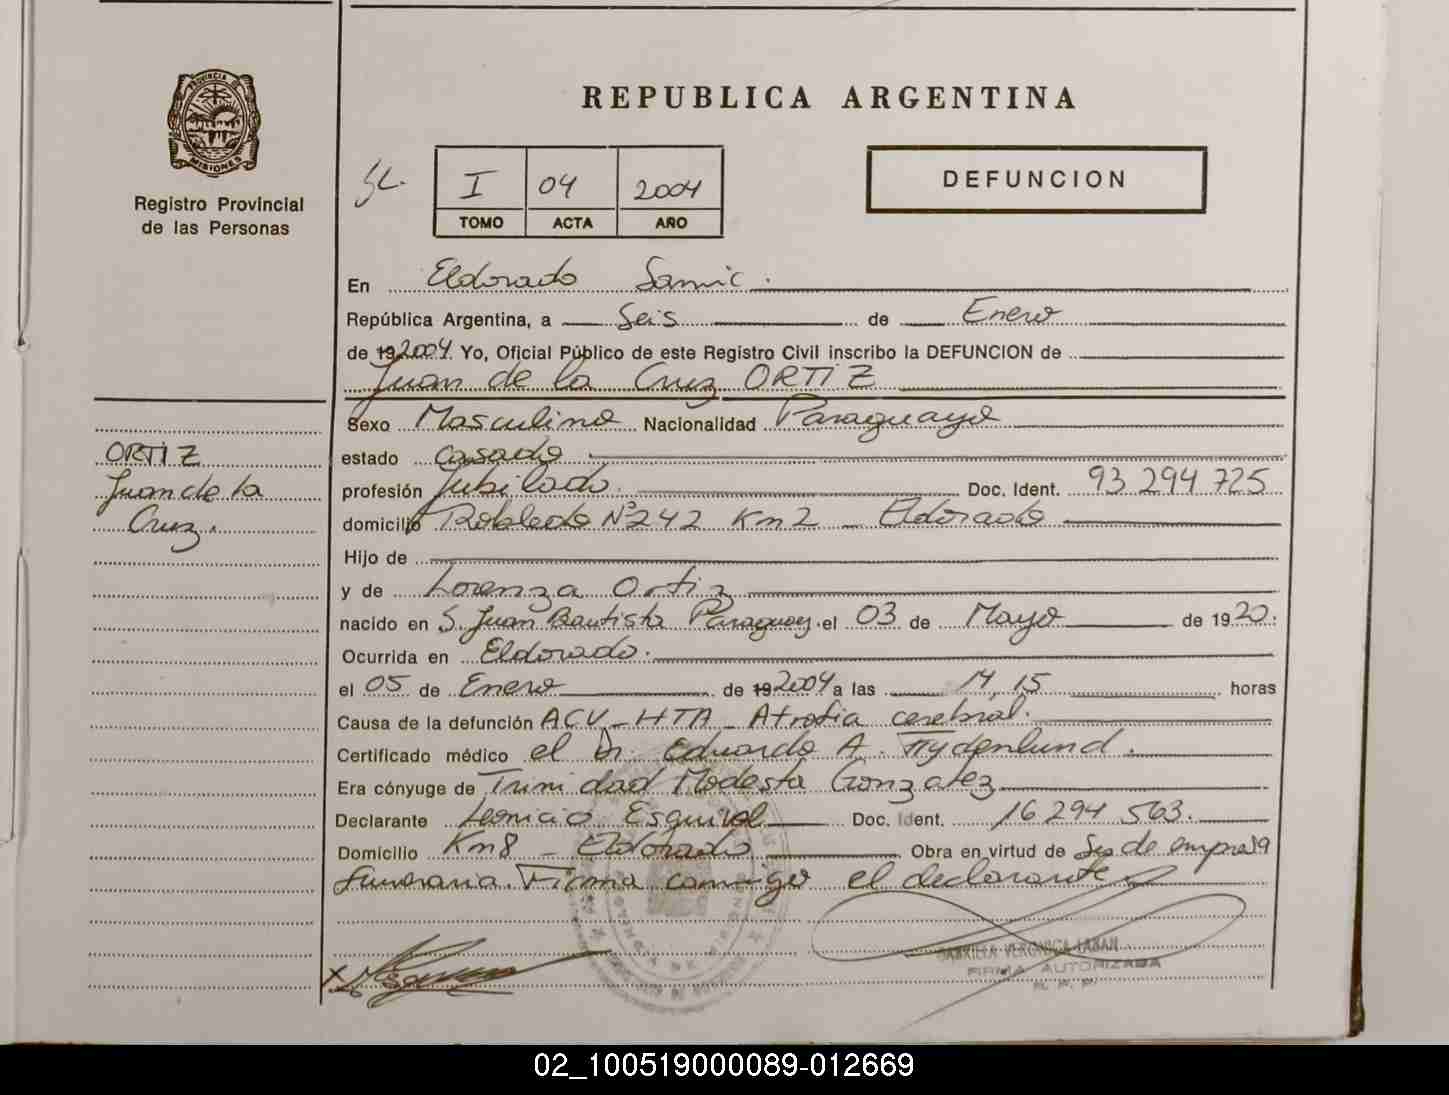 REPUBLICA ARGENTINA
PROVINCIA DE
MISIONES
Registro Provincial
de las Personas
I 04 2004
TOMO ACTA AÑO
DEFUNCION
En Eldorado Samic.
República Argentina, a Seis de Enero
de 192004. Yo, Oficial Público de este Registro Civil inscribo la DEFUNCION de
Juan de la Cruz ORTIZ
Sexo Masculino Nacionalidad Paraguaya
estado casado
profesión Jubilado. Doc. Ident. 93 294 725
domicilio Robledo Nº 242 Km2 - Eldorado
Hijo de
y de Lorenza Ortiz
nacido en S. Juan Bautista Paraguay. el 03 de Mayo de 1920.
Ocurrida en Eldorado.
el 05 de Enero de 192004 a las 14,15 horas
Causa de la defunción ACV - HTA - Atrofia cerebral.
Certificado médico el Dr. Eduardo A. Frydenlund.
Era cónyuge de Trinidad Modesta Gonzalez
Declarante Leonicio Esquivel Doc. Ident. 16 294 563.
Domicilio Km8 - Eldorado Obra en virtud de Ser de empresa
funeraria. Firma conmigo el declarante
ORTIZ
Juan de la
Cruz.
GABRIELA VERONICA FABAN
FIRMA AUTORIZADA
R. P. P.
02_100519000089-012669